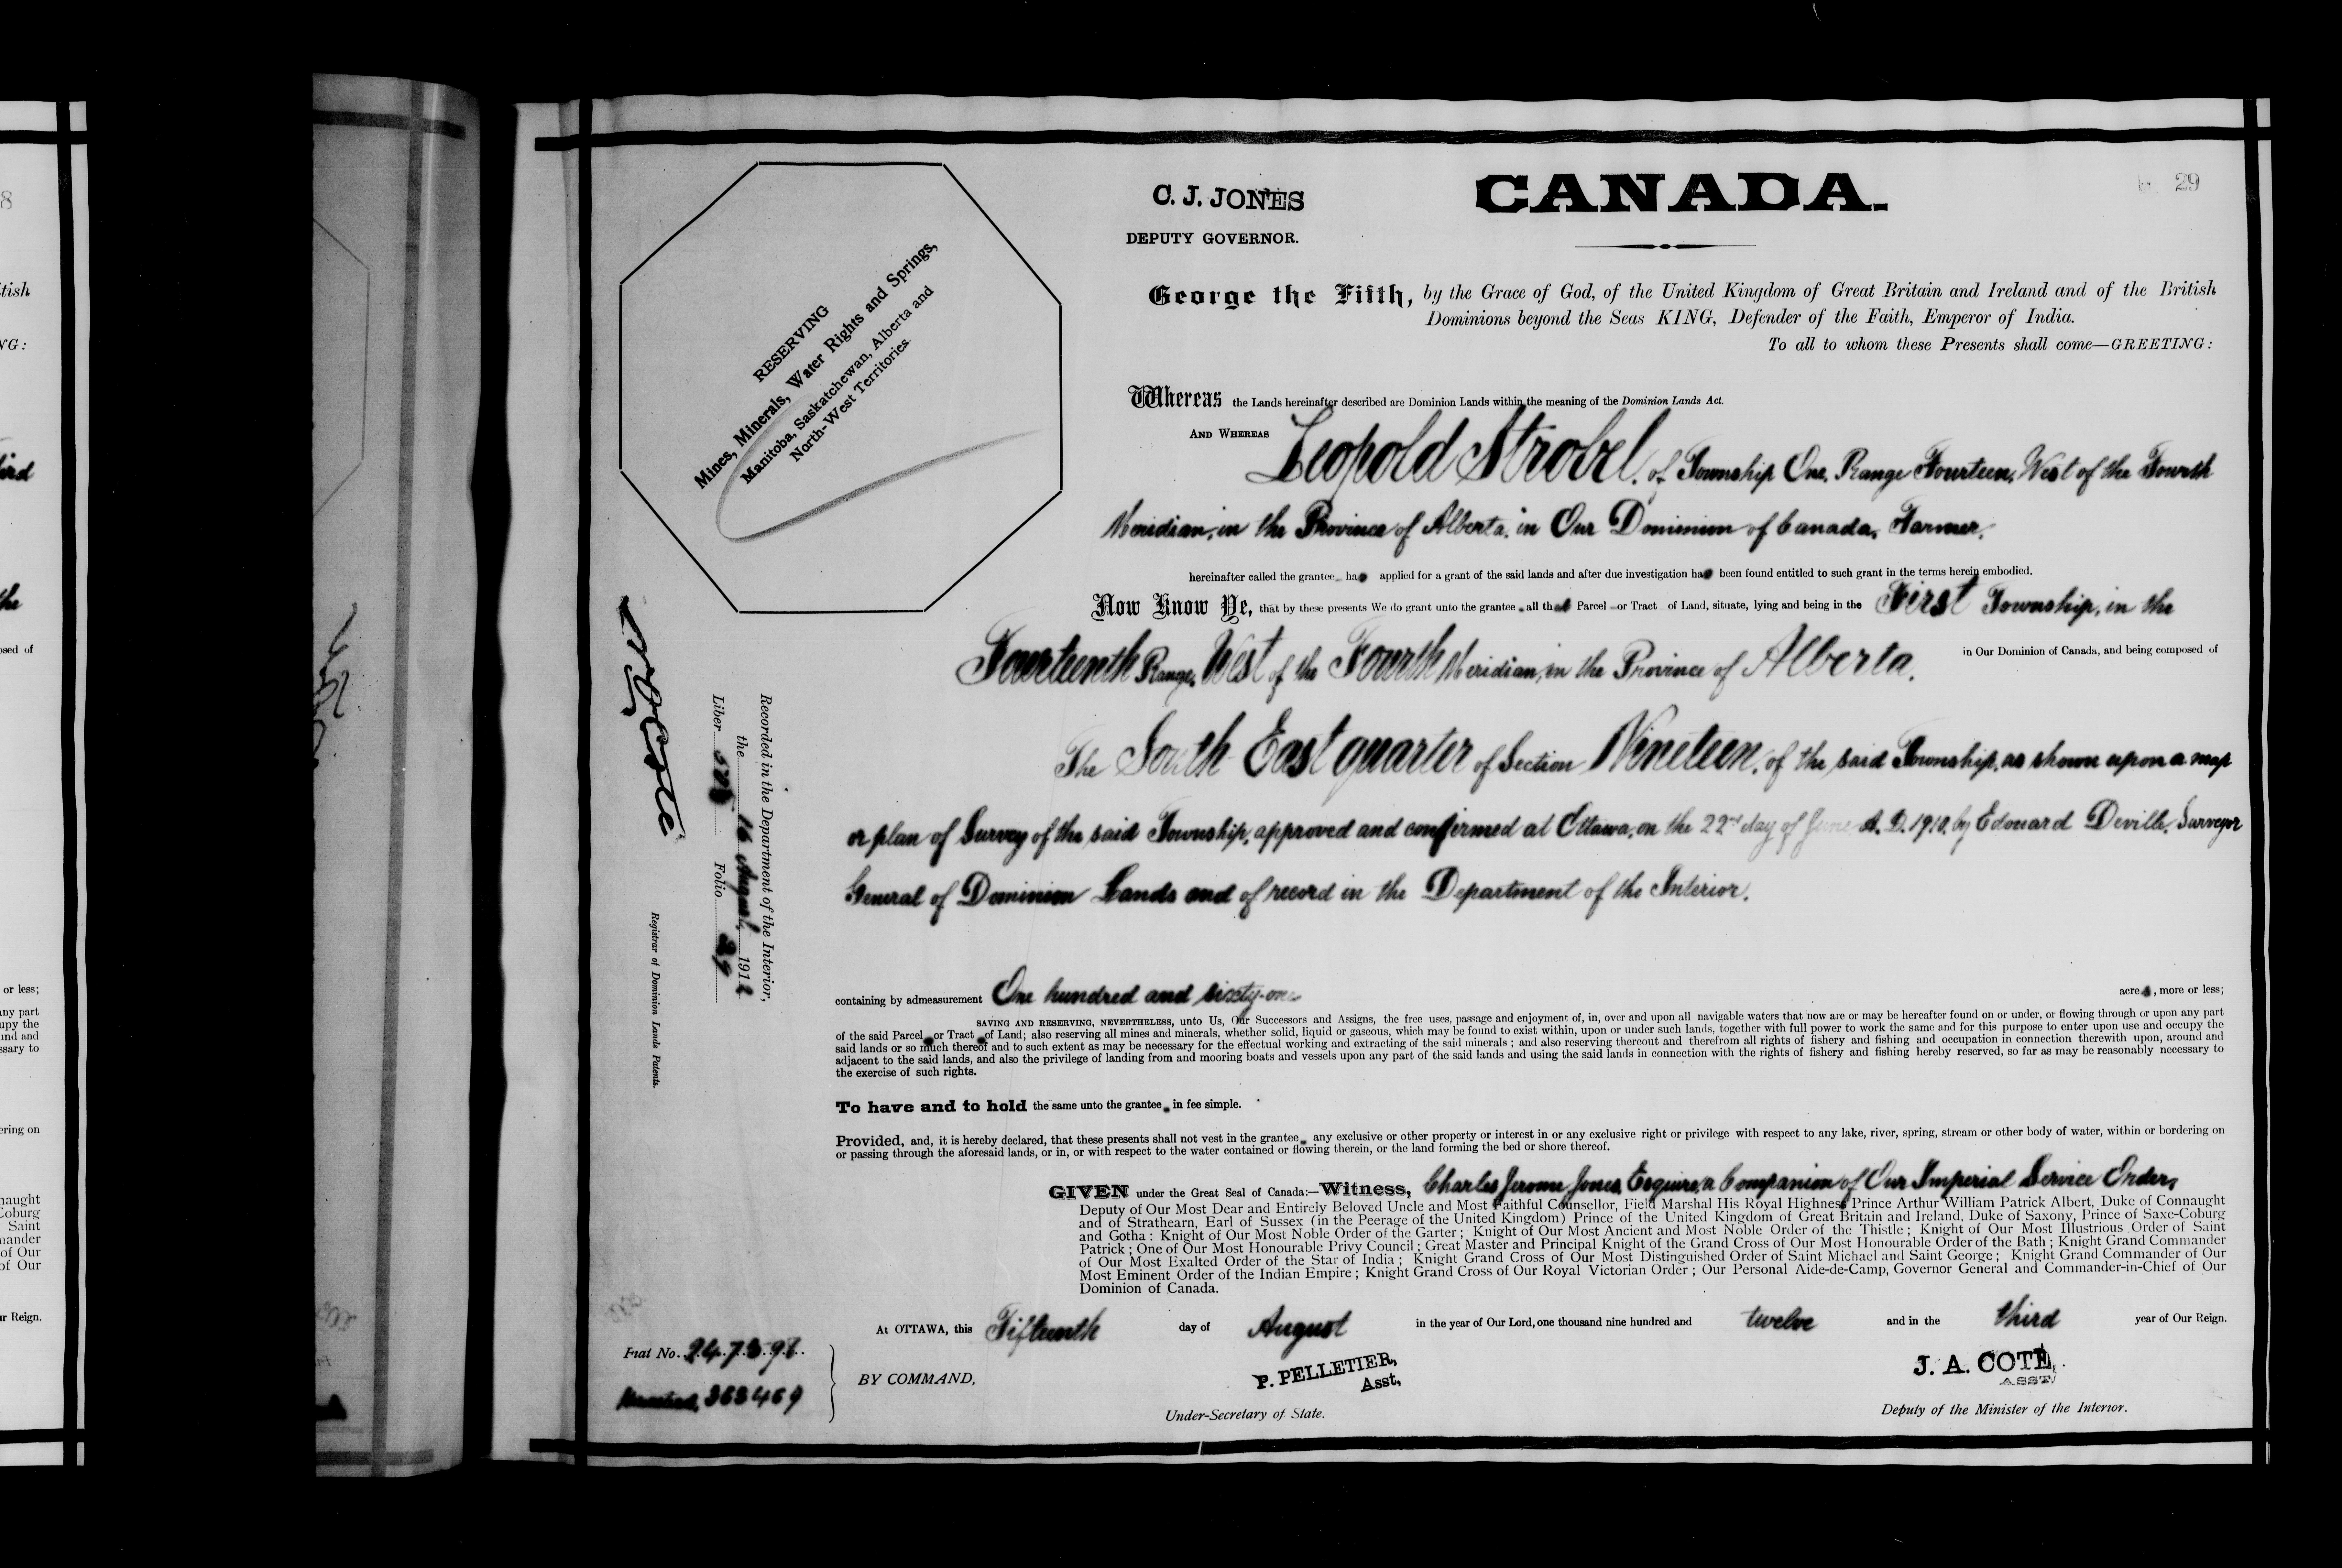 C. J. JONES
DEPUTY GOVERNOR.
CANADA.
29
RESERVING
Mines, Minerals, Water Rights and Springs,
Manitoba, Saskatchewan, Alberta and
North-West Territories.
George the Fifth, by the Grace of God, of the United Kingdom of Great Britain and Ireland and of the British
Dominions beyond the Seas KING, Defender of the Faith, Emperor of India.
To all to whom these Presents shall come—GREETING:
Whereas the Lands hereinafter described are Dominion Lands within the meaning of the Dominion Lands Act.
AND WHEREAS Leopold Strobel, of Township One, Range Fourteen, West of the Fourth
Meridian, in the Province of Alberta, in Our Dominion of Canada, Farmer,
hereinafter called the grantee has applied for a grant of the said lands and after due investigation has been found entitled to such grant in the terms herein embodied.
Now Know Ye, that by these presents We do grant unto the grantee, all that Parcel or Tract of Land, situate, lying and being in the First Township, in the
Fourteenth Range, West of the Fourth Meridian, in the Province of Alberta, in Our Dominion of Canada, and being composed of
The South East quarter of Section Nineteen, of the said Township, as shown upon a map
or plan of Survey of the said Township, approved and confirmed at Ottawa, on the 22nd day of June A.D. 1910, by Edouard Deville, Surveyor
General of Dominion Lands and of record in the Department of the Interior.
containing by admeasurement One hundred and sixty-one acres, more or less;
SAVING AND RESERVING, NEVERTHELESS, unto Us, Our Successors and Assigns, the free uses, passage and enjoyment of, in, over and upon all navigable waters that now are or may be hereafter found on or under, or flowing through or upon any part
of the said Parcel or Tract of Land; also reserving all mines and minerals, whether solid, liquid or gaseous, which may be found to exist within, upon or under such lands, together with full power to work the same and for this purpose to enter upon use and occupy the
said lands or so much thereof and to such extent as may be necessary for the effectual working and extracting of the said minerals ; and also reserving thereout and therefrom all rights of fishery and fishing and occupation in connection therewith upon, around and
adjacent to the said lands, and also the privilege of landing from and mooring boats and vessels upon any part of the said lands and using the said lands in connection with the rights of fishery and fishing hereby reserved, so far as may be reasonably necessary to
the exercise of such rights.
To have and to hold the same unto the grantee in fee simple.
Provided, and, it is hereby declared, that these presents shall not vest in the grantee any exclusive or other property or interest in or any exclusive right or privilege with respect to any lake, river, spring, stream or other body of water, within or bordering on
or passing through the aforesaid lands, or in, or with respect to the water contained or flowing therein, or the land forming the bed or shore thereof.
GIVEN under the Great Seal of Canada:—Witness, Charles Jerome Jones, Esquire, a Companion of Our Imperial Service Order,
Deputy of Our Most Dear and Entirely Beloved Uncle and Most Faithful Counsellor, Field Marshal His Royal Highness Prince Arthur William Patrick Albert, Duke of Connaught
and of Strathearn, Earl of Sussex (in the Peerage of the United Kingdom) Prince of the United Kingdom of Great Britain and Ireland, Duke of Saxony, Prince of Saxe-Coburg
and Gotha : Knight of Our Most Noble Order of the Garter ; Knight of Our Most Ancient and Most Noble Order of the Thistle ; Knight of Our Most Illustrious Order of Saint
Patrick ; One of Our Most Honourable Privy Council ; Great Master and Principal Knight of the Grand Cross of Our Most Honourable Order of the Bath ; Knight Grand Commander
of Our Most Exalted Order of the Star of India ; Knight Grand Cross of Our Most Distinguished Order of Saint Michael and Saint George ; Knight Grand Commander of Our
Most Eminent Order of the Indian Empire ; Knight Grand Cross of Our Royal Victorian Order ; Our Personal Aide-de-Camp, Governor General and Commander-in-Chief of Our
Dominion of Canada.
At OTTAWA, this Fifteenth day of August in the year of Our Lord, one thousand nine hundred and twelve and in the third year of Our Reign.
BY COMMAND,
P. PELLETIER,
Asst,
Under-Secretary of State.
J. A. COTE,
ASST.
Deputy of the Minister of the Interior.
Recorded in the Department of the Interior,
the 16 August, 1912
Liber Folio 29
Registrar of Dominion Lands Patents.
Fiat No. 247398
Homestead, 363469
tish
NG:
osed of
or less;
any part
upy the
und and
ssary to
ering on
naught
Coburg
Saint
mander
of Our
of Our
ur Reign.